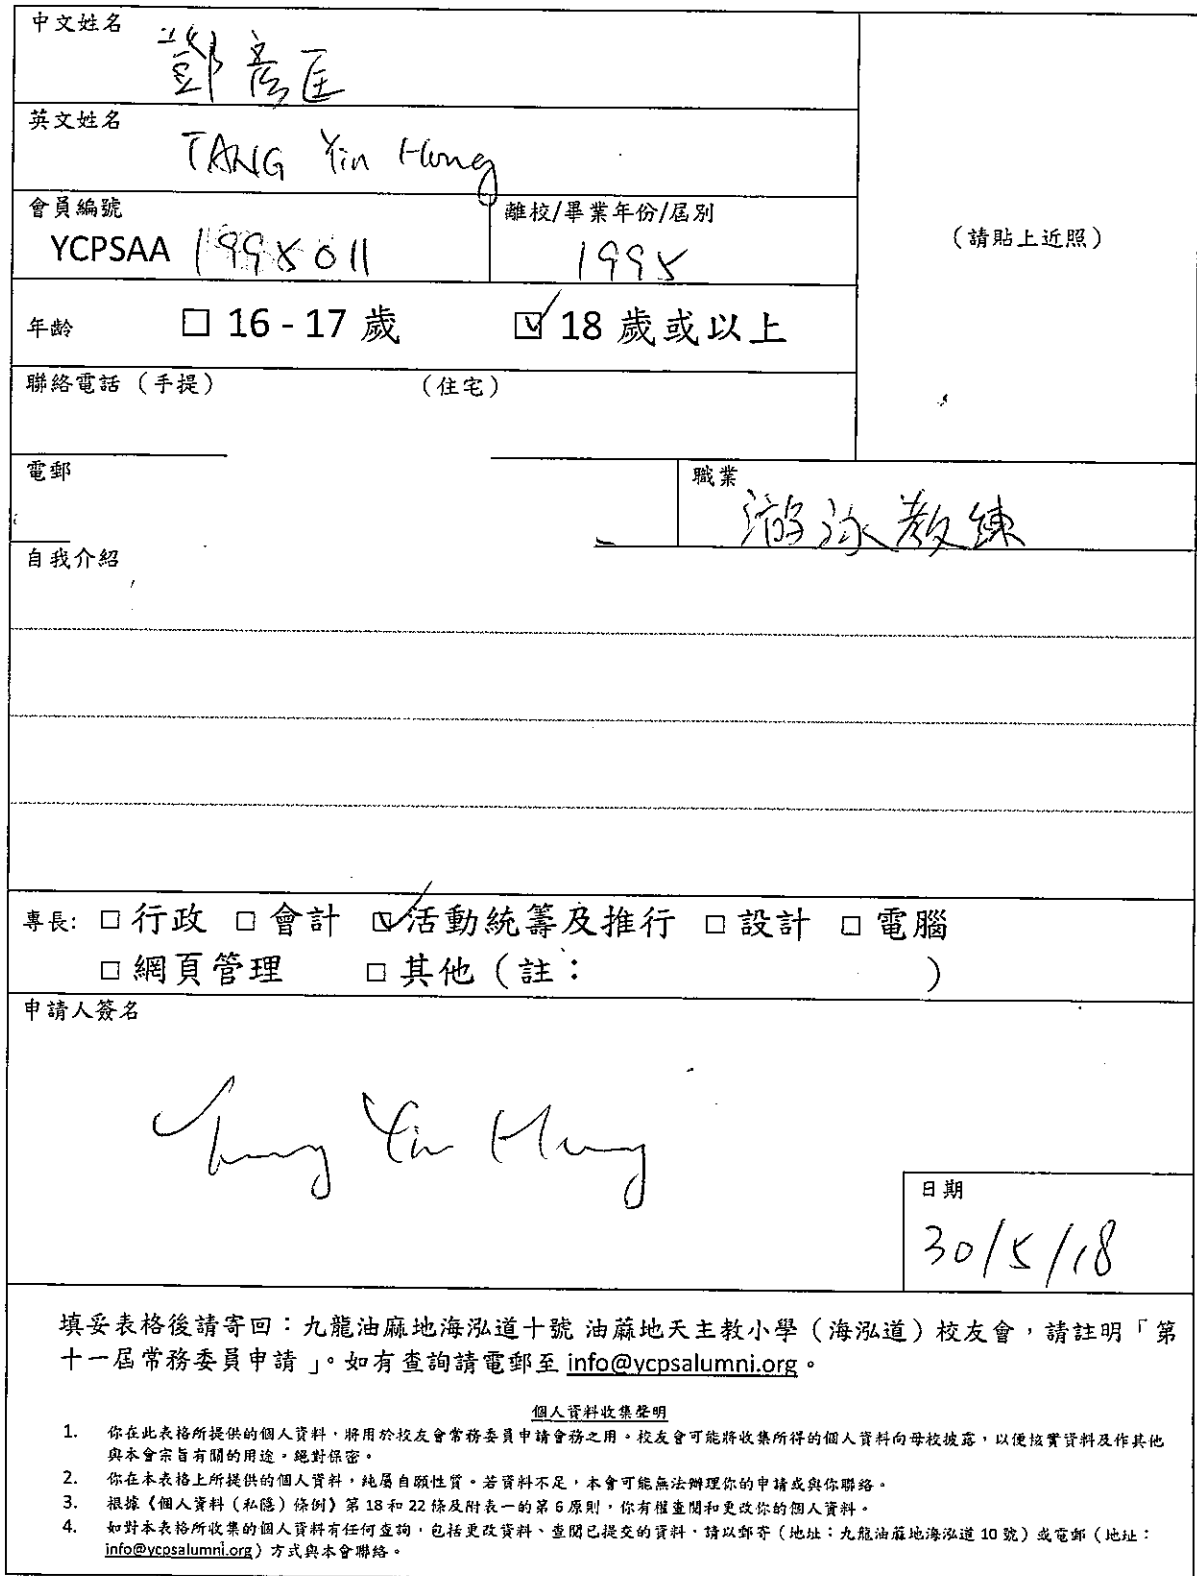 中文姓名
鄧彥匡
英文姓名
TANG Yin Hong
會員編號
YCPSAA 1995011
離校/畢業年份/屆別
1995
(請貼上近照)
年齡 □ 16 - 17 歲 ☑ 18 歲或以上
聯絡電話（手提） （住宅）
電郵
職業
游泳教練
自我介紹
專長: □ 行政 □ 會計 ☑ 活動統籌及推行 □ 設計 □ 電腦
□ 網頁管理 □ 其他（註： ）
申請人簽名
Tang Yin Hong
日期
30/5/18
填妥表格後請寄回：九龍油麻地海泓道十號 油蔴地天主教小學（海泓道）校友會，請註明「第
十一屆常務委員申請」。如有查詢請電郵至 info@ycpsalumni.org。
個人資料收集聲明
1. 你在此表格所提供的個人資料，將用於校友會常務委員申請會務之用。校友會可能將收集所得的個人資料向母校披露，以便核實資料及作其他
與本會宗旨有關的用途。絕對保密。
2. 你在本表格上所提供的個人資料，純屬自願性質。若資料不足，本會可能無法辦理你的申請或與你聯絡。
3. 根據《個人資料（私隱）條例》第 18 和 22 條及附表一的第 6 原則，你有權查閱和更改你的個人資料。
4. 如對本表格所收集的個人資料有任何查詢，包括更改資料、查閱已提交的資料，請以郵寄（地址：九龍油蔴地海泓道 10 號）或電郵（地址：
info@ycpsalumni.org）方式與本會聯絡。